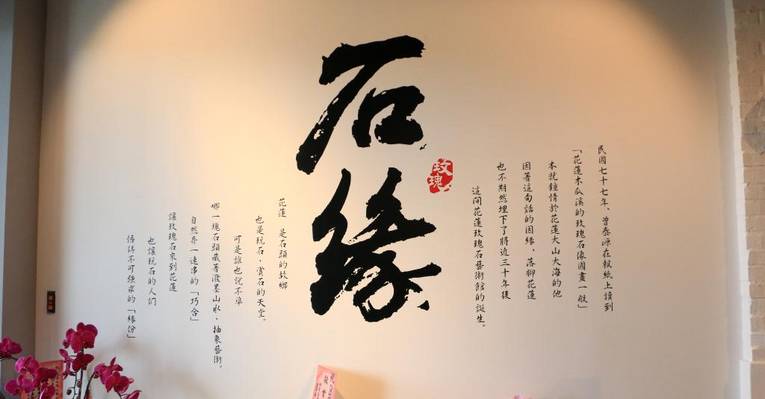 民國七十七年，曾盛源在報紙上讀到
「花蓮木瓜溪的玫瑰石像國畫一般」
本就鍾情於花蓮大山大海的他
因著這句話的因緣，落腳花蓮
也不期然埋下了將近三十年後
這間花蓮玫瑰石藝術館的誕生。
石緣
玫瑰
花蓮 是石頭的故鄉
也是玩石，賞石的天堂。
可是誰也說不準
哪一塊石頭藏著潑墨山水，抽象藝術。
自然界一連串的「巧合」
讓玫瑰石來到花蓮
也讓玩石的人們
悟得不可強求的「緣份」